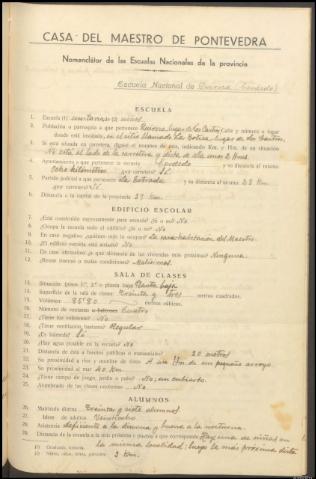 CASA DEL MAESTRO DE PONTEVEDRA
Nomenclátor de las Escuelas Nacionales de la provincia
Escuela Nacional de
ESCUELA
1. Escuela (1) unitaria de niños
2. Población o parroquia a que pertenece Calle y número o lugar
donde está instalada, en el sitio llamado
3. Si está situada en carretera, dígase el nombre de esta, indicando Km. y Hm. de su situación
No está al lado de la carretera y dista de ella unos 2 Hms.
4. Ayuntamiento a que pertenece la escuela y su distancia al mismo
ocho kilómetros ¿por carretera? Sí.
5. Partido judicial a que pertenece La Estrada y su distancia al mismo 23 Km
¿por carretera? Sí.
6. Distancia a la capital de la provincia 39 Km.
EDIFICIO ESCOLAR
7. ¿Está construído expresamente para escuela? ¿Sí o no? No
8. ¿Ocupa la escuela todo el edificio? ¿Sí o no? No
9. En caso negativo ¿quiénes más lo ocupan? La casa-habitación del Maestro.
10. ¿El edificio escuela está aislado? No
11. En caso afirmativo ¿a qué distancia de las viviendas más próximas? Ninguna
12. ¿Reune buenas o malas condiciones? Malísimas.
SALA DE CLASES
13. Situación (pisos 1.º, 2.º o planta baja) Planta baja
14. Superficie de la sala de clases Treinta y tres metros cuadrados.
15. Volúmen 85'80 metros cúbicos.
16. Número de ventanas Cuatro
17. ¿Tiene luz eléctrica? No
18. ¿Tiene ventilación bastante? Regular
19. ¿Es húmeda? Sí
20. ¿Hay agua potable en la escuela? No
21. Distancia de esta a fuentes públicas o manantiales? 20 metros
22. Su proximidad a ríos y nombre de éstos A un Hm. de un pequeño arroyo.
23. Su proximidad al mar 40 Km.
24. ¿Tiene campo de juego, jardín o patio? No; sin embargo.
25. Alumbrado de las clases nocturnas? No
ALUMNOS
26. Matrícula diurna Treinta y siete alumnos
27. Idem de adultos
28. Asistencia deficiente a la diurna y buena a la nocturna.
29. Distancia de la escuela a la más próxima y paraje a que corresponde Hay una de niñas en
la misma localidad; luego la más próxima dista
2 Km.